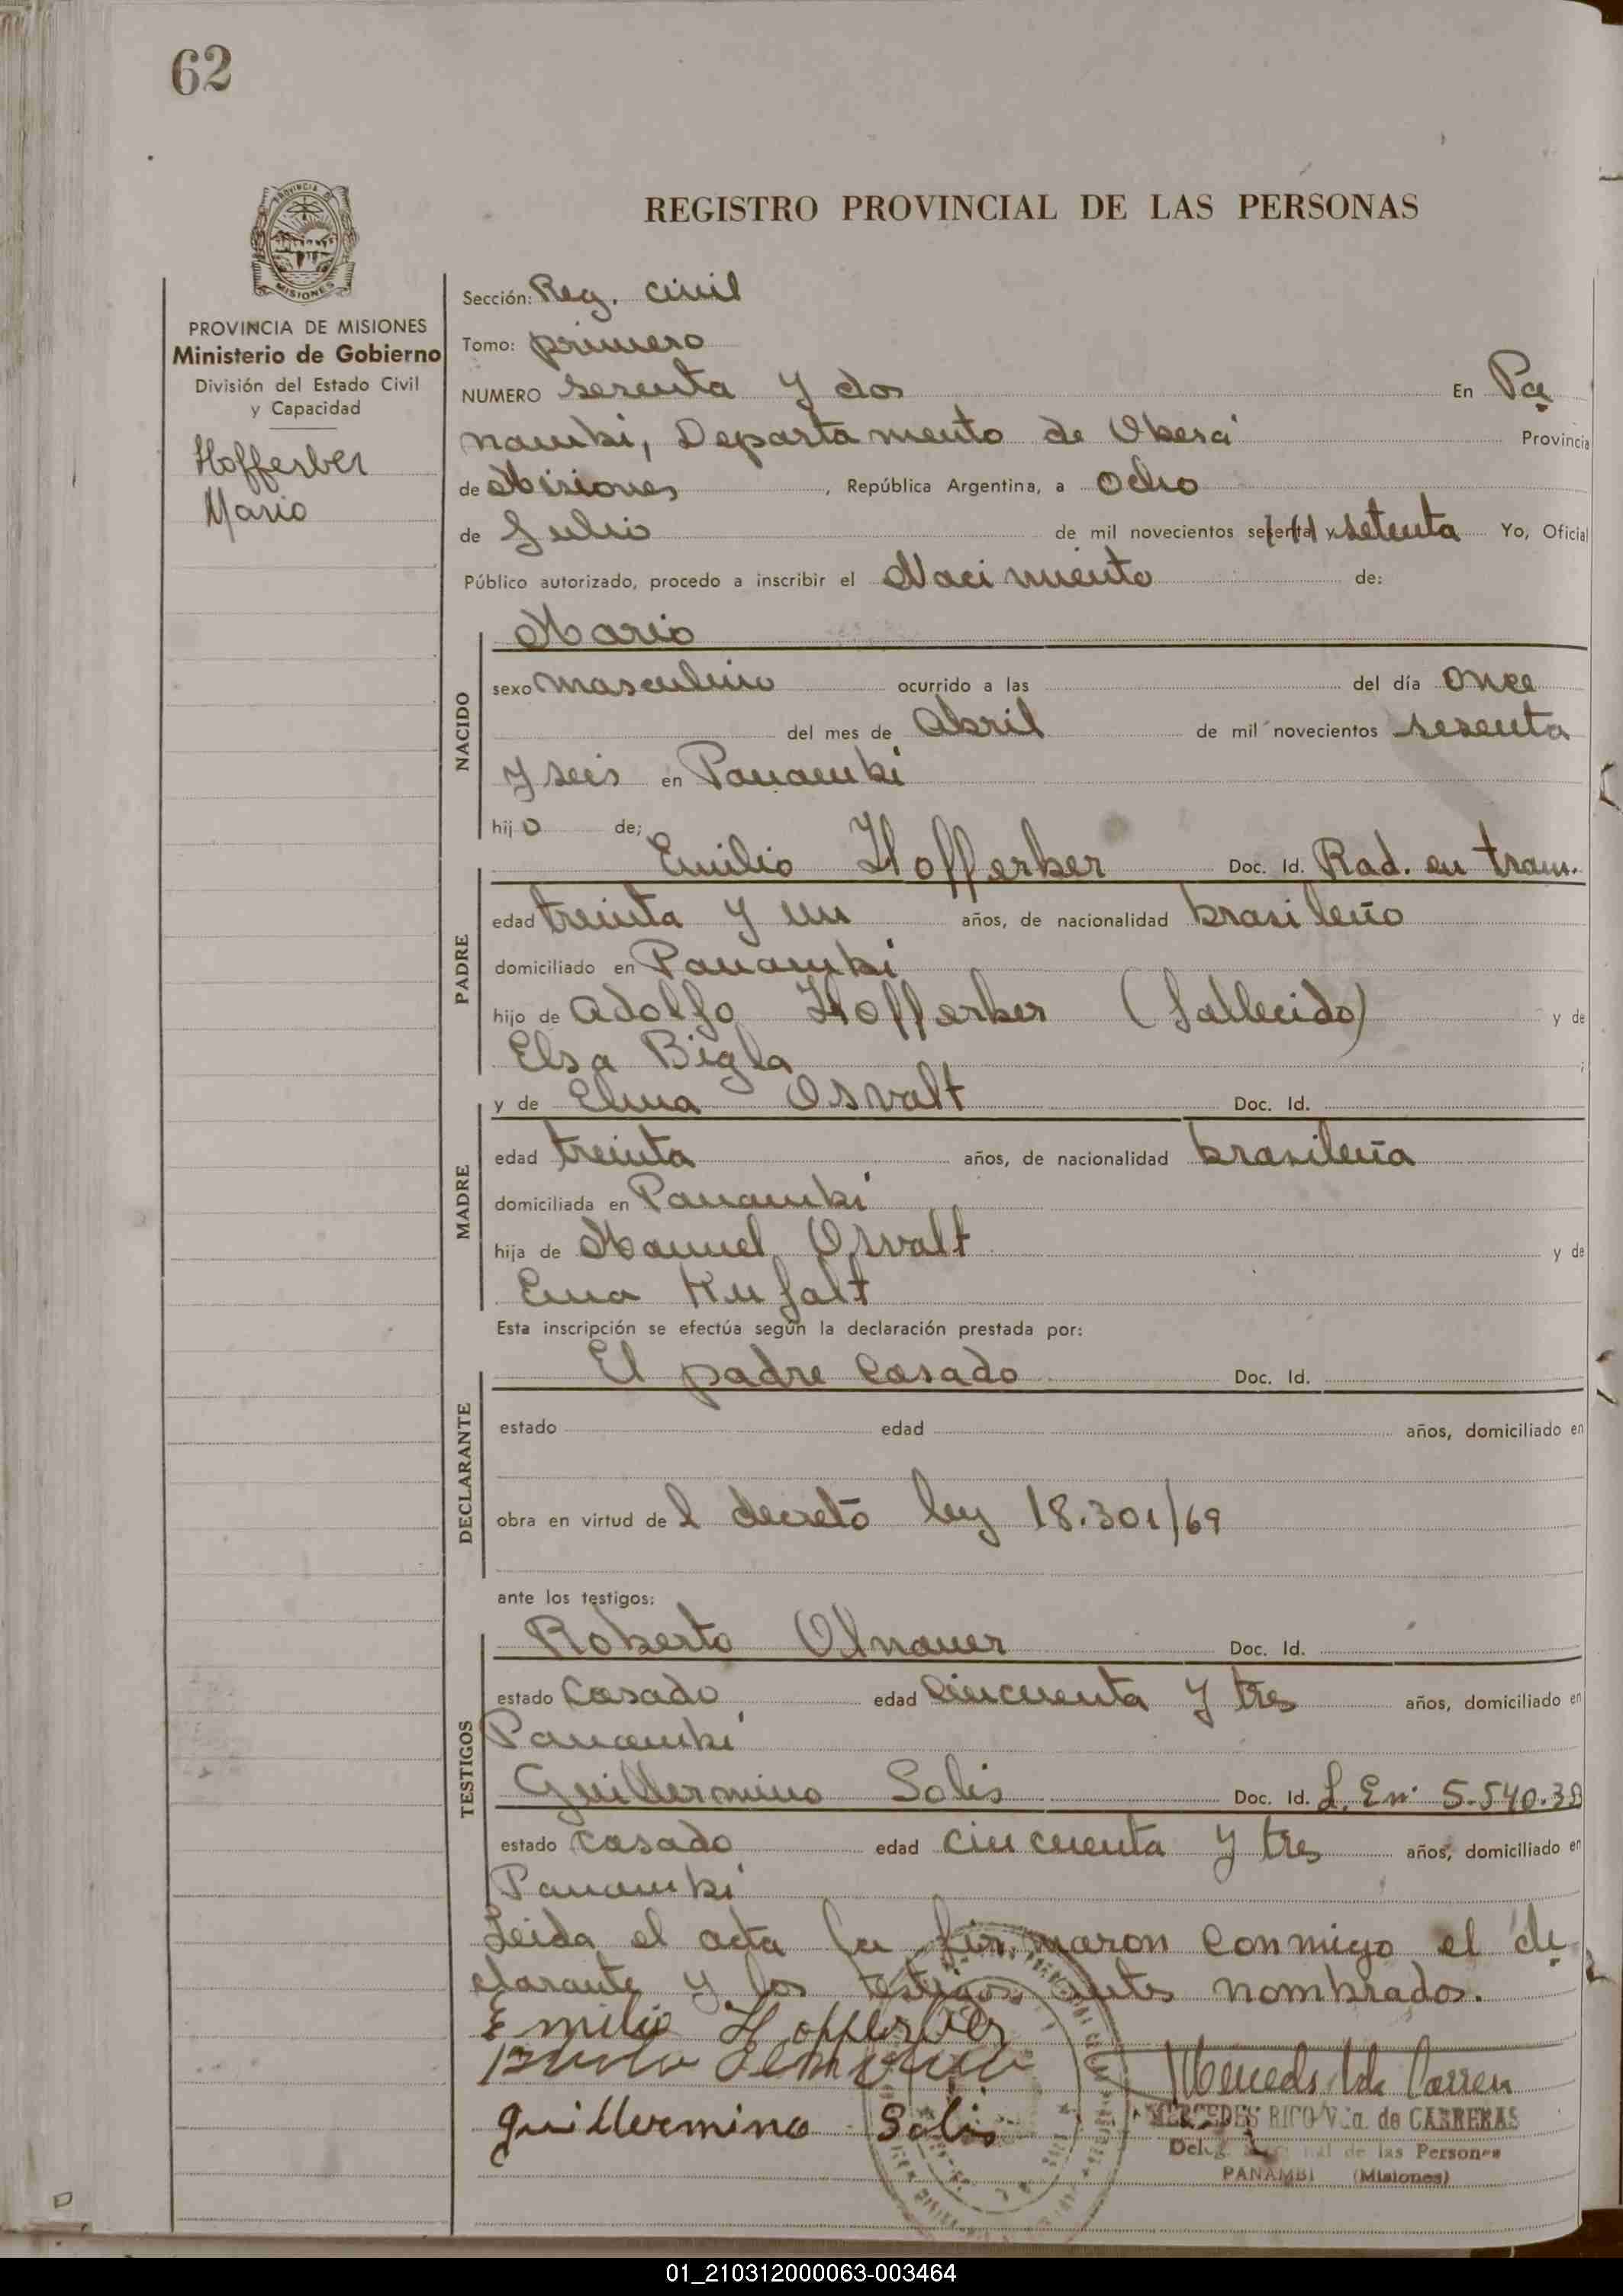 62
PROVINCIA
MISIONES
REGISTRO PROVINCIAL DE LAS PERSONAS
PROVINCIA DE MISIONES
Ministerio de Gobierno
División del Estado Civil
y Capacidad
Hofferber
Mario
Sección: Reg. civil
Tomo: primero
NUMERO sesenta y dos En Pa
nambi, Departamento de Oberá Provincia
de Misiones, República Argentina, a ocho
de Julio de mil novecientos sesenta y setenta Yo, Oficial
Público autorizado, procedo a inscribir el Nacimiento de:
NACIDO
Mario
sexo masculino ocurrido a las del día once
del mes de Abril de mil novecientos sesenta
y seis en Panambi
hijo de;
PADRE
Emilio Hofferber Doc. Id. Rad. en tram.
edad treinta y un años, de nacionalidad brasileño
domiciliado en Panambi
hijo de Adolfo Hofferber (fallecido) y de
Elsa Bigla;
MADRE
y de Elma Osvalt Doc. Id.
edad treinta años, de nacionalidad brasileña
domiciliada en Panambi
hija de Manuel Osvalt y de
Ema Kufalt
Esta inscripción se efectúa según la declaración prestada por:
DECLARANTE
El padre casado Doc. Id.
estado edad años, domiciliado en
obra en virtud del decreto ley 18.301/69
ante los testigos:
TESTIGOS
Roberto Olnauer Doc. Id.
estado casado edad cincuenta y tres años, domiciliado en
Panambi
Guillermino Solis Doc. Id. L. En. 5.540.38
estado casado edad cincuenta y tres años, domiciliado en
Panambi
Leida el acta la firmaron conmigo el de
clarante y los testigos antes nombrados.
Emilio Hofferber
Guillermino Solis
MERCEDES RICO Vda. de CARRERAS
de las Personas
PANAMBI (Misiones)
01_210312000063-003464